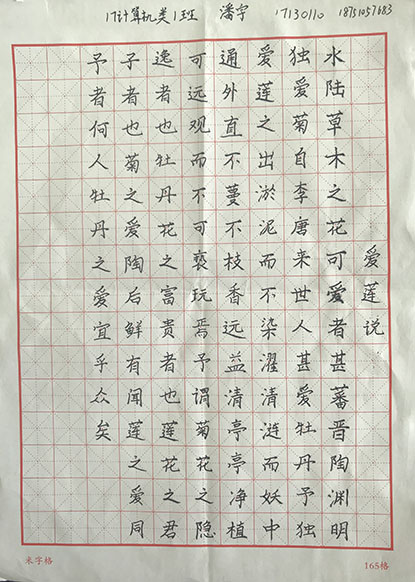 17计算机类1班 潘宇 17130110 18751057683
爱莲说
水陆草木之花可爱者甚蕃晋陶渊明
独爱菊自李唐来世人甚爱牡丹予独
爱莲之出淤泥而不染濯清涟而妖中
通外直不蔓不枝香远益清亭亭净植
可远观而不可亵玩焉予谓菊花之隐
逸者也牡丹花之富贵者也莲花之君
子者也菊之爱陶后鲜有闻莲之爱同
予者何人牡丹之爱宜乎众矣
米字格
165格